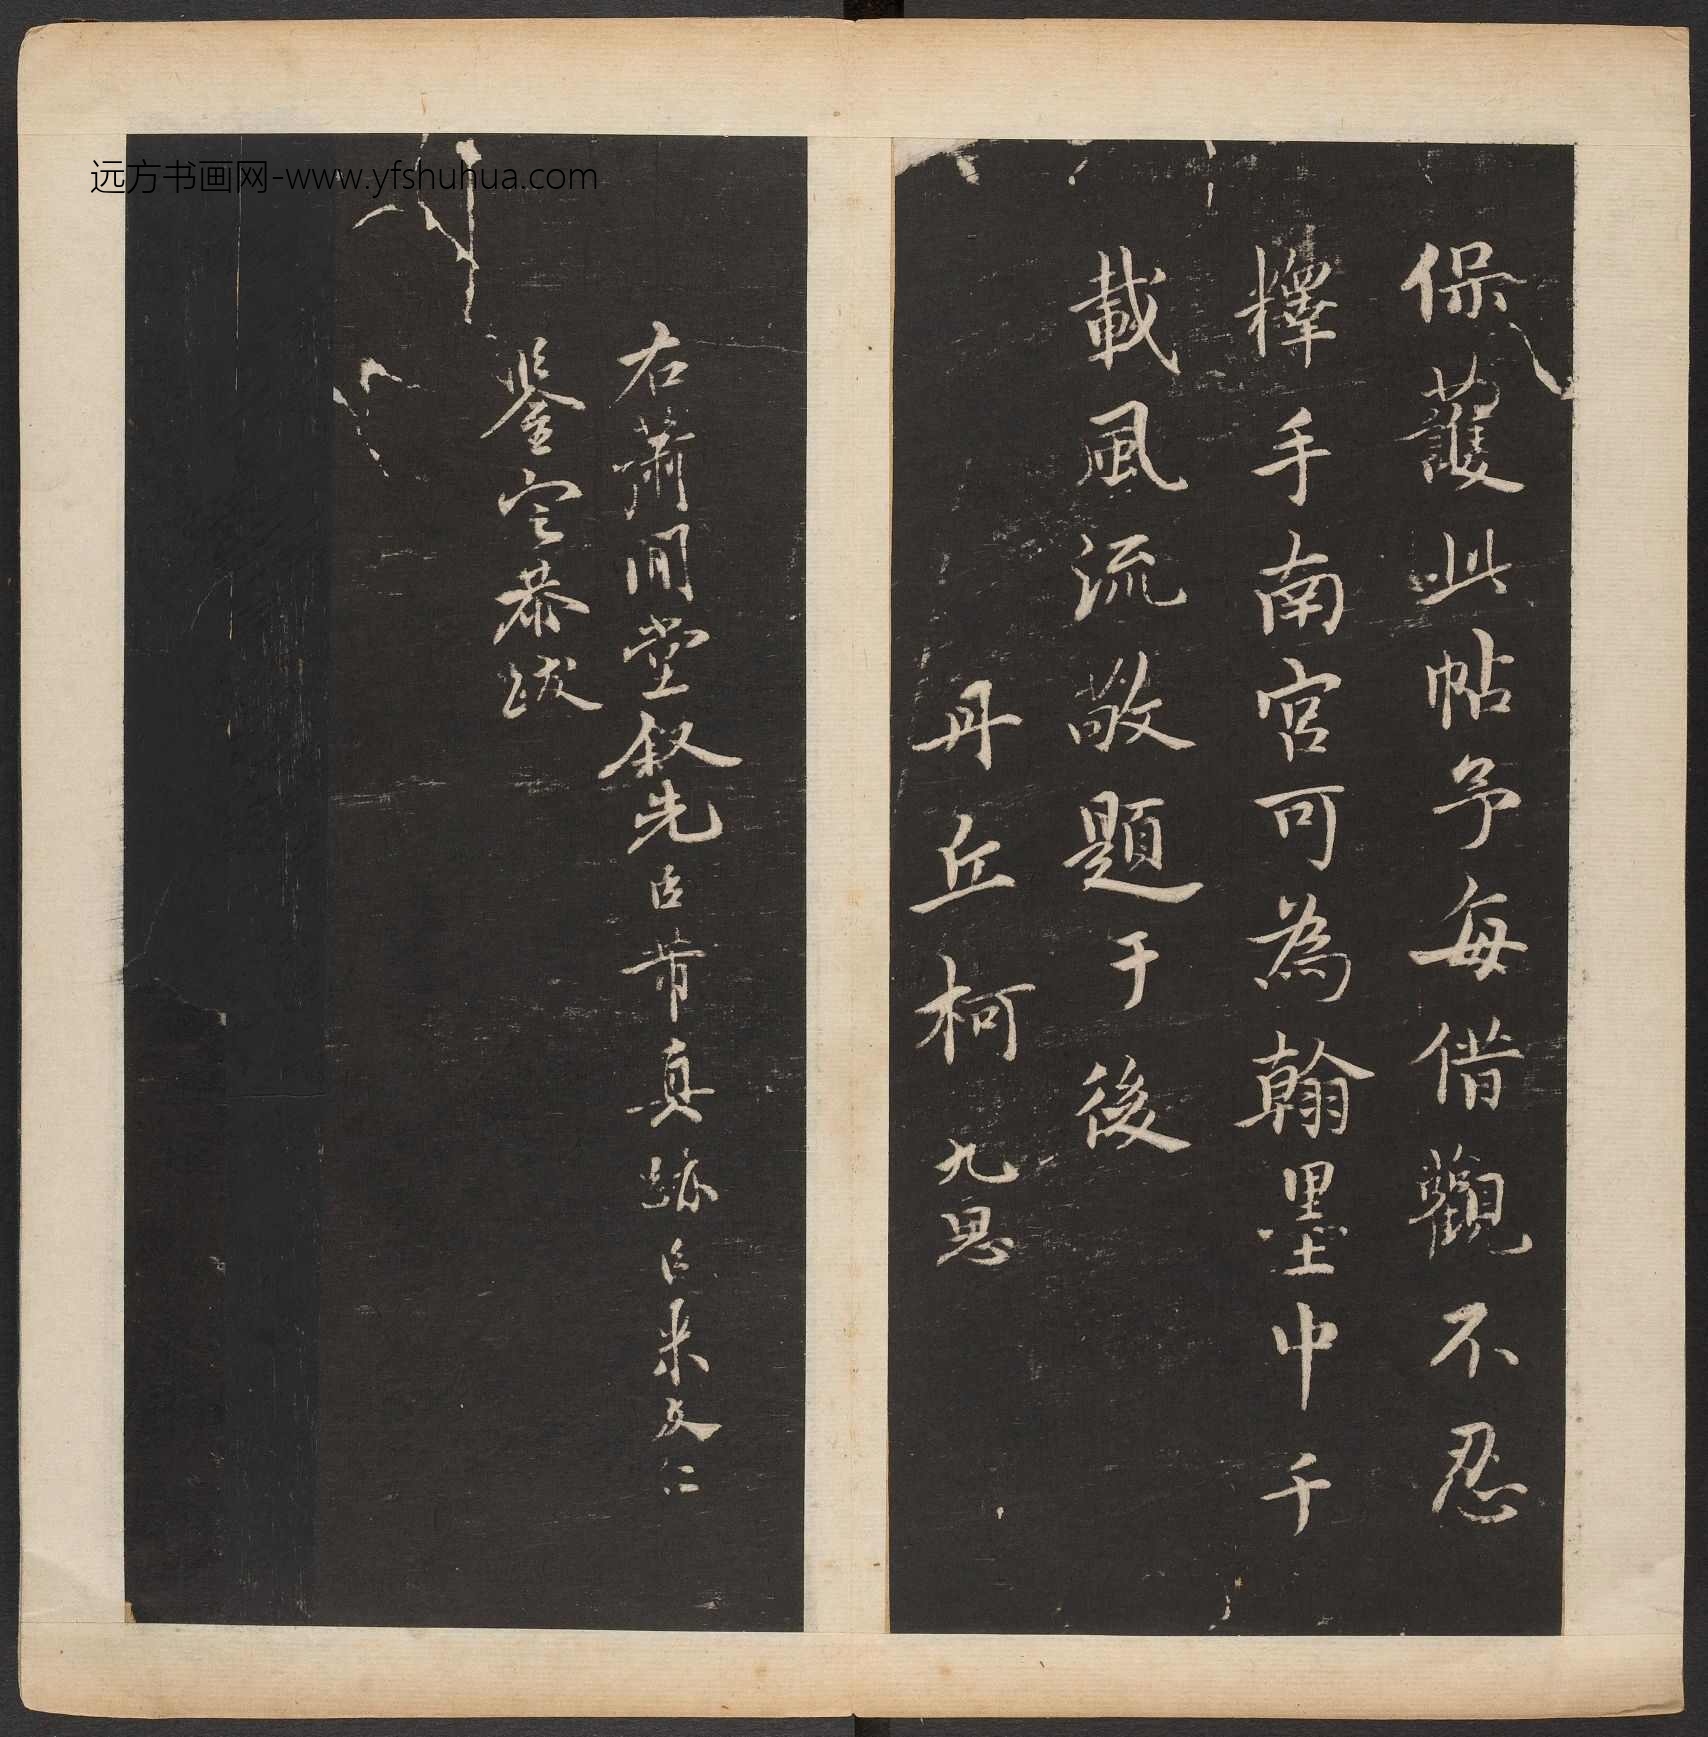 保護此帖予每借觀不忍
擇手南宮可為翰墨中千
載風流敬題于後
丹丘柯九思
右蕭閒堂叙先臣芾真跡臣米友仁
鑒定恭跋
远方书画网-www.yfshuhua.com